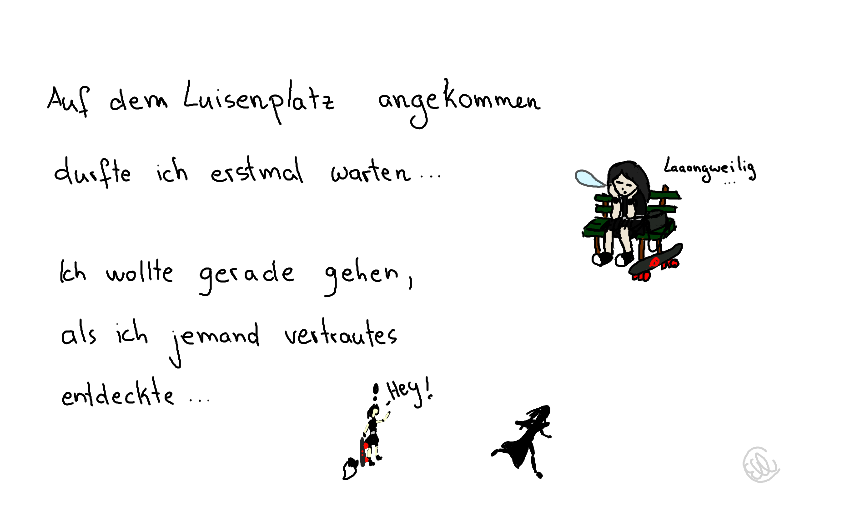 Auf dem Luisenplatz angekommen
durfte ich erstmal warten...
Laaangweilig
...
Ich wollte gerade gehen,
als ich jemand vertrautes
entdeckte ...
Hey!